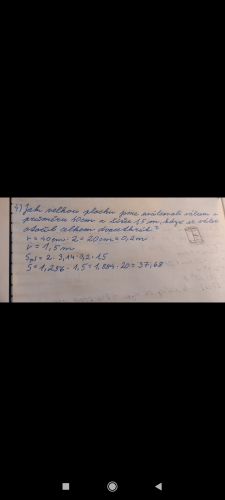 4) Jak velkou plochu jsme uválcovali válcem o
průměru 40cm a šířce 1,5 m, když se válec
otočil celkem dvacetkrát?
r = 40cm : 2 = 20cm = 0,2m
v = 1,5 m
Spl = 2 · 3,14 · 0,2 · 1,5
S = 1,256 · 1,5 = 1,884 · 20 = 37,68